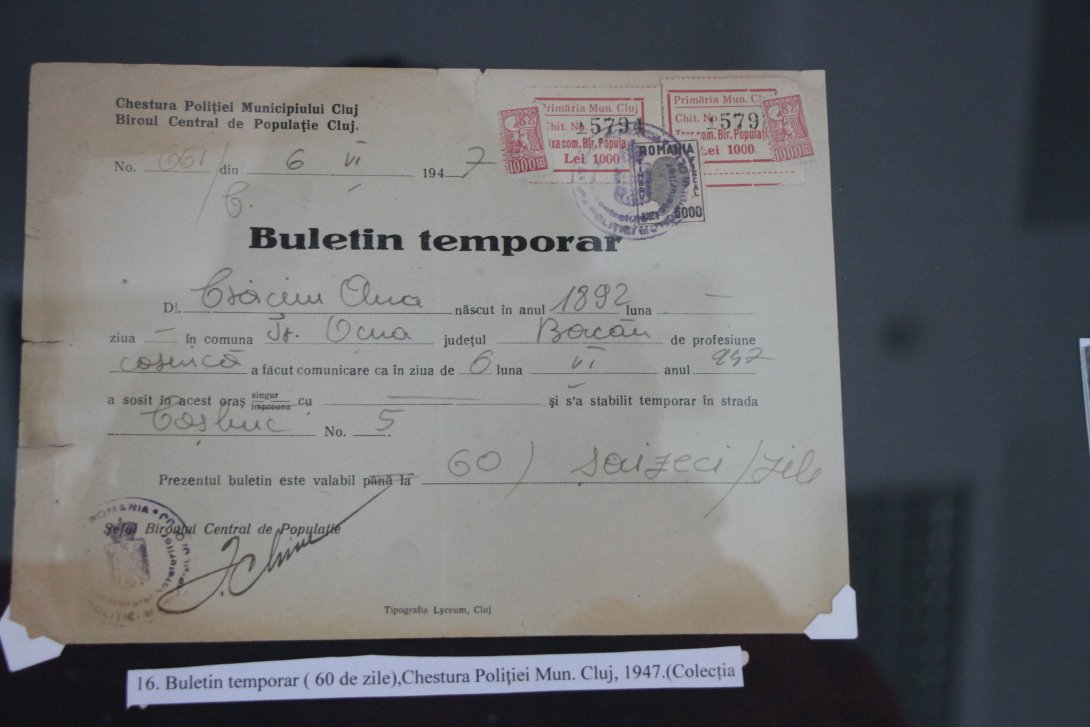 Chestura Poliției Municipiului Cluj
Biroul Central de Populație Cluj.
No. 661/ din 6 VI 1947
Primăria Mun. Cluj
Chit. No. 15794
Taxa com. Bir. Popula
Lei 1000
Primăria Mun. Cl
Chit. No. 1579
Taxa com. Bir. Populaț
Lei 1000
ROMANIA
1000
ROMANIA
1000
ROMANIA
TIMBRU
FISCAL
LEI 8000
Buletin temporar
Dl. Crăciun Ana născut în anul 1892 luna —
ziua — în comuna Tg. Ocna județul Bacău de profesiune
casnică a făcut comunicare ca în ziua de 6 luna VI anul 947
a sosit în acest oraș singur împreună cu — și s'a stabilit temporar în strada
Coșbuc No. 5.
Prezentul buletin este valabil până la 60 / șaizeci / zile
Șeful Biroului Central de Populație
ROMANIA
Tipografia Lyceum, Cluj
16. Buletin temporar ( 60 de zile),Chestura Poliţiei Mun. Cluj, 1947.(Colecția